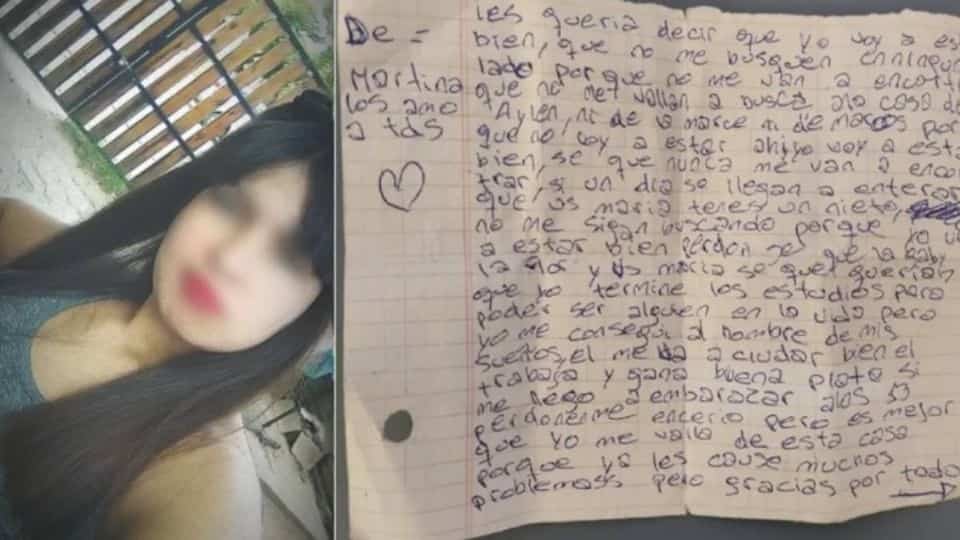 De =
Martina
los amo
a tds
les queria decir que yo voy a est
bien, que no me busquen enningun
lado porque no me van a encont
que no me vallan a busca ala casa de
Aylen, ni de la marce ni de marcos por
que no voy a estar ahi yo voy a esta
bien, se que nunca me van a encon
trar, si un dia se llegan a enterar
que vos maria tenes un nieto,
no me sigan buscando porque yo vo
a estar bien perdon se que la gaby
la flor y vos maria se que querian
que yo termine los estudios para
poder ser alguien en la vida pero
yo me consegui al hombre de mis
sueños, el me va a ciudar bien el
trabaja y gana buena plata si
me llego a embarazar alos
perdonenme encerio pero es mejor
que yo me valla de esta casa
porque ya les cause muchos
problemass pero gracias por todo